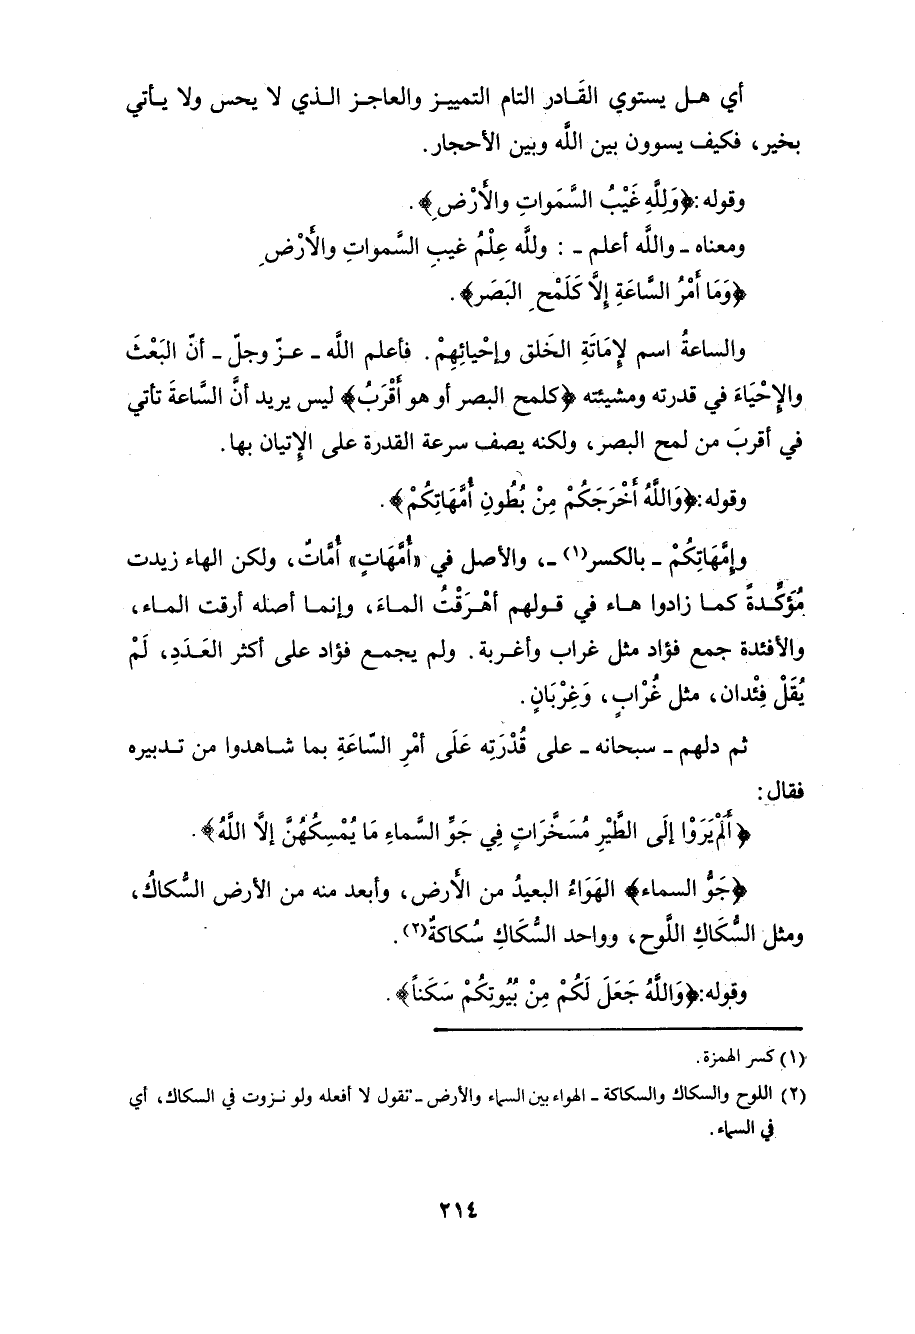 أي هـل يستوي القَـادر التام التمييـز والعاجـز الـذي لا يحس ولا يـأتي
بخير، فكيف يسوون بين اللَّه وبين الأحجار.
وقوله: ﴿وَلِلَّهِ غَيْبُ السَّمَواتِ والأَرْضِ﴾.
ومعناه ـ واللَّه أعلم ـ : وللَّه عِلْمُ غيبِ السَّمواتِ والأَرْضِ
﴿وَمَا أَمْرُ السَّاعَةِ إِلاَّ كَلَمْحِ البَصَر﴾.
والساعةُ اسم لإِمَاتَةِ الخَلق وإحْيائِهِمْ. فأعلم اللَّه ـ عـزّ وجلّ ـ أنّ البَعْثَ
والإِحْيَاءَ في قدرته ومشيئته ﴿كلمح البصر أو هو أَقْرَبُ﴾ ليس يريد أنَّ السَّاعةَ تأتي
في أقربَ من لمح البصر، ولكنه يصف سرعة القدرة على الإِتيان بها.
وقوله: ﴿وَاللَّهُ أَخْرَجَكُمْ مِنْ بُطُونِ أُمَّهَاتِكُمْ﴾.
وإِمَّهَاتِكُمْ ـ بالكسر(١) ـ، والأصل في «أُمَّهَاتٍ» أُمَّاتٌ، ولكن الهاء زيدت
مُؤَكِّـدةً كمـا زادوا هـاء في قـولهم أَهْـرَقْتُ المـاءَ، وإنمـا أصله أرقت المـاء،
والأفئدة جمع فؤاد مثل غراب وأغـربة. ولم يجمـع فؤاد على أكثر العَـدَدِ، لَمْ
يُقَلْ فِئْدان، مثل غُرْابٍ، وَغِرْبَانٍ.
ثم دلهم ـ سبحانه ـ على قُدْرَتِه عَلَى أَمْرِ السّاعَةِ بما شـاهدوا من تـدبيره
فقال:
﴿أَلَمْ يَرَوْا إِلَى الطَّيْرِ مُسَخَّرَاتٍ فِي جَوِّ السَّماءِ مَا يُمْسِكُهُنَّ إلاَّ اللَّهُ﴾.
﴿جَوُّ السماء﴾ الهَوَاءُ البعيدُ من الأَرض، وأبعد منه من الأرض السُّكاكُ،
ومثل السُّكَاكِ اللَّوح، وواحد السُّكَاكِ سُكاكةٌ(٢).
وقوله: ﴿وَاللَّهُ جَعَلَ لَكُمْ مِنْ بُيُوتِكُمْ سَكَناً﴾.
(١) كسر الهمزة.
(٢) اللوح والسكاك والسكاكة ـ الهواء بين السماء والأرض ـ تقول لا أفعله ولو نـزوت في السكاك، أي
في السماء.
٢١٤